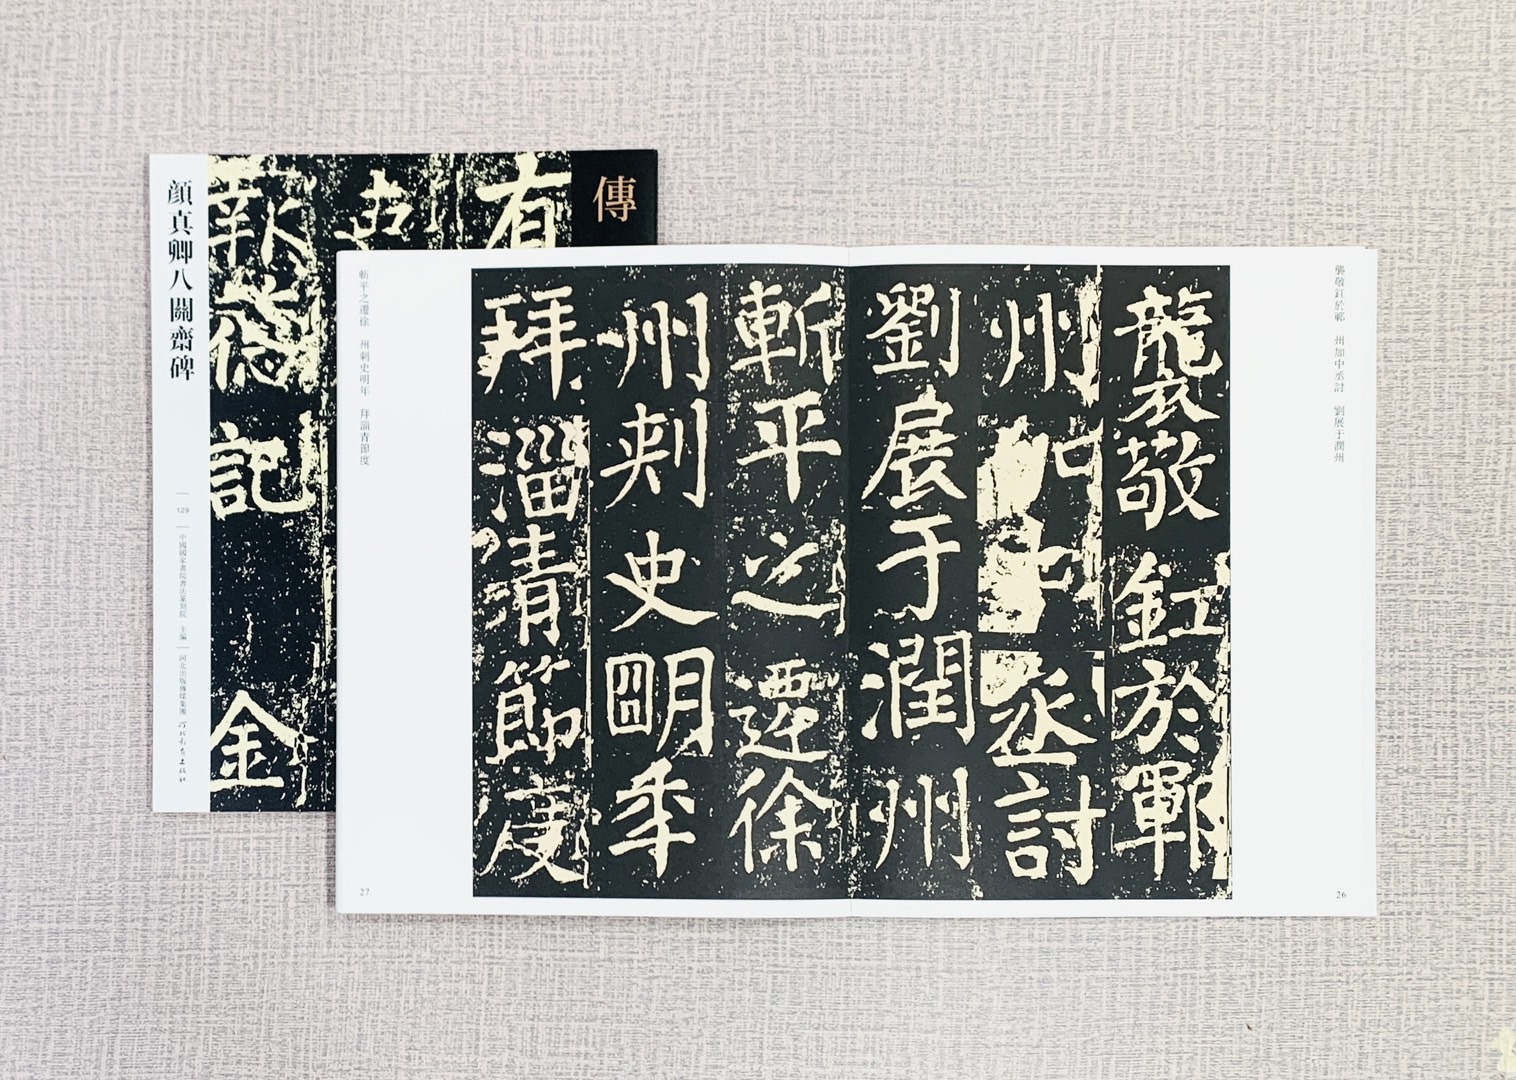 傳
有
報
德
記
金
顏真卿八關齋碑
129
中國國家書院書法篆刻院 主編
河北出版傳媒集團
河北教育出版社
襲敬釭於鄆 州加中丞討 劉展于潤州
襲敬釭於鄆
州加中丞討
劉展于潤州
斬平之遷徐
州刺史明年
拜淄青節度
斬平之遷徐 州刺史明年 拜淄青節度
26
27